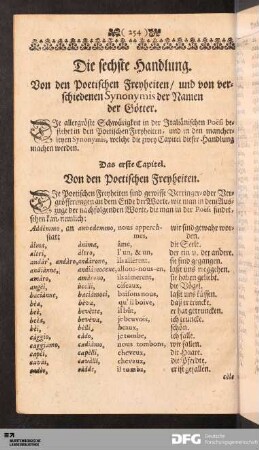 ( 254 )
Die sechste Handlung.
Von den Poetischen Freyheiten/ und von ver-
schiedenen Synonymis der Namen
der Götter.
DIe allergröste Schwürigkeit in der Italiänischen Poësi be-
stehet in den Poetischen Freyheiten, und in den mancher-
leyen Synonymis, welche die zwey Capitel dieser Handlung
machen werden.
Das erste Capitel.
Von den Poetischen Freyheiten.
DIe Poetischen Freyheiten sind gewisse Verringer- oder Ver-
grösserungen an dem Ende der Worte, wie man in dem Aus-
zuge der nachfolgenden Worte, die man in der Poësi findet,
sehen kan, nemlich:
Addèmmo, an statt avvedemmo, nous apperçû-mes, wir sind gewahr wor-den.
álma, ánima, âme, die Seele.
altri, áltro, l'un, & un, der ein u. der andere.
andár', andáro, andárono, ils allerent, sie sind gegangen.
andiánne, andiámocene, allons-nous-en, last uns weg gehen.
amáro, amárono, ils aimerent, sie haben geliebt.
augélli, uccélli, oiseaux, die Vögel.
baciánne, baciámoci, baisons nous, last uns küssen.
béa, béva, qu'il boive, daß er trincke.
béo, bevè, il bût, er hat getruncken.
beéa, bevéva, je beuvois, ich truncke.
bèi, bélli, beaux, schön.
cággio, cádo, je tombe, ich falle.
caggiámo, cadiámo, nous tombons, wir fallen.
capéi, capélli, cheveux, die Haare.
caváì, cavalli, chevaux, die Pferde.